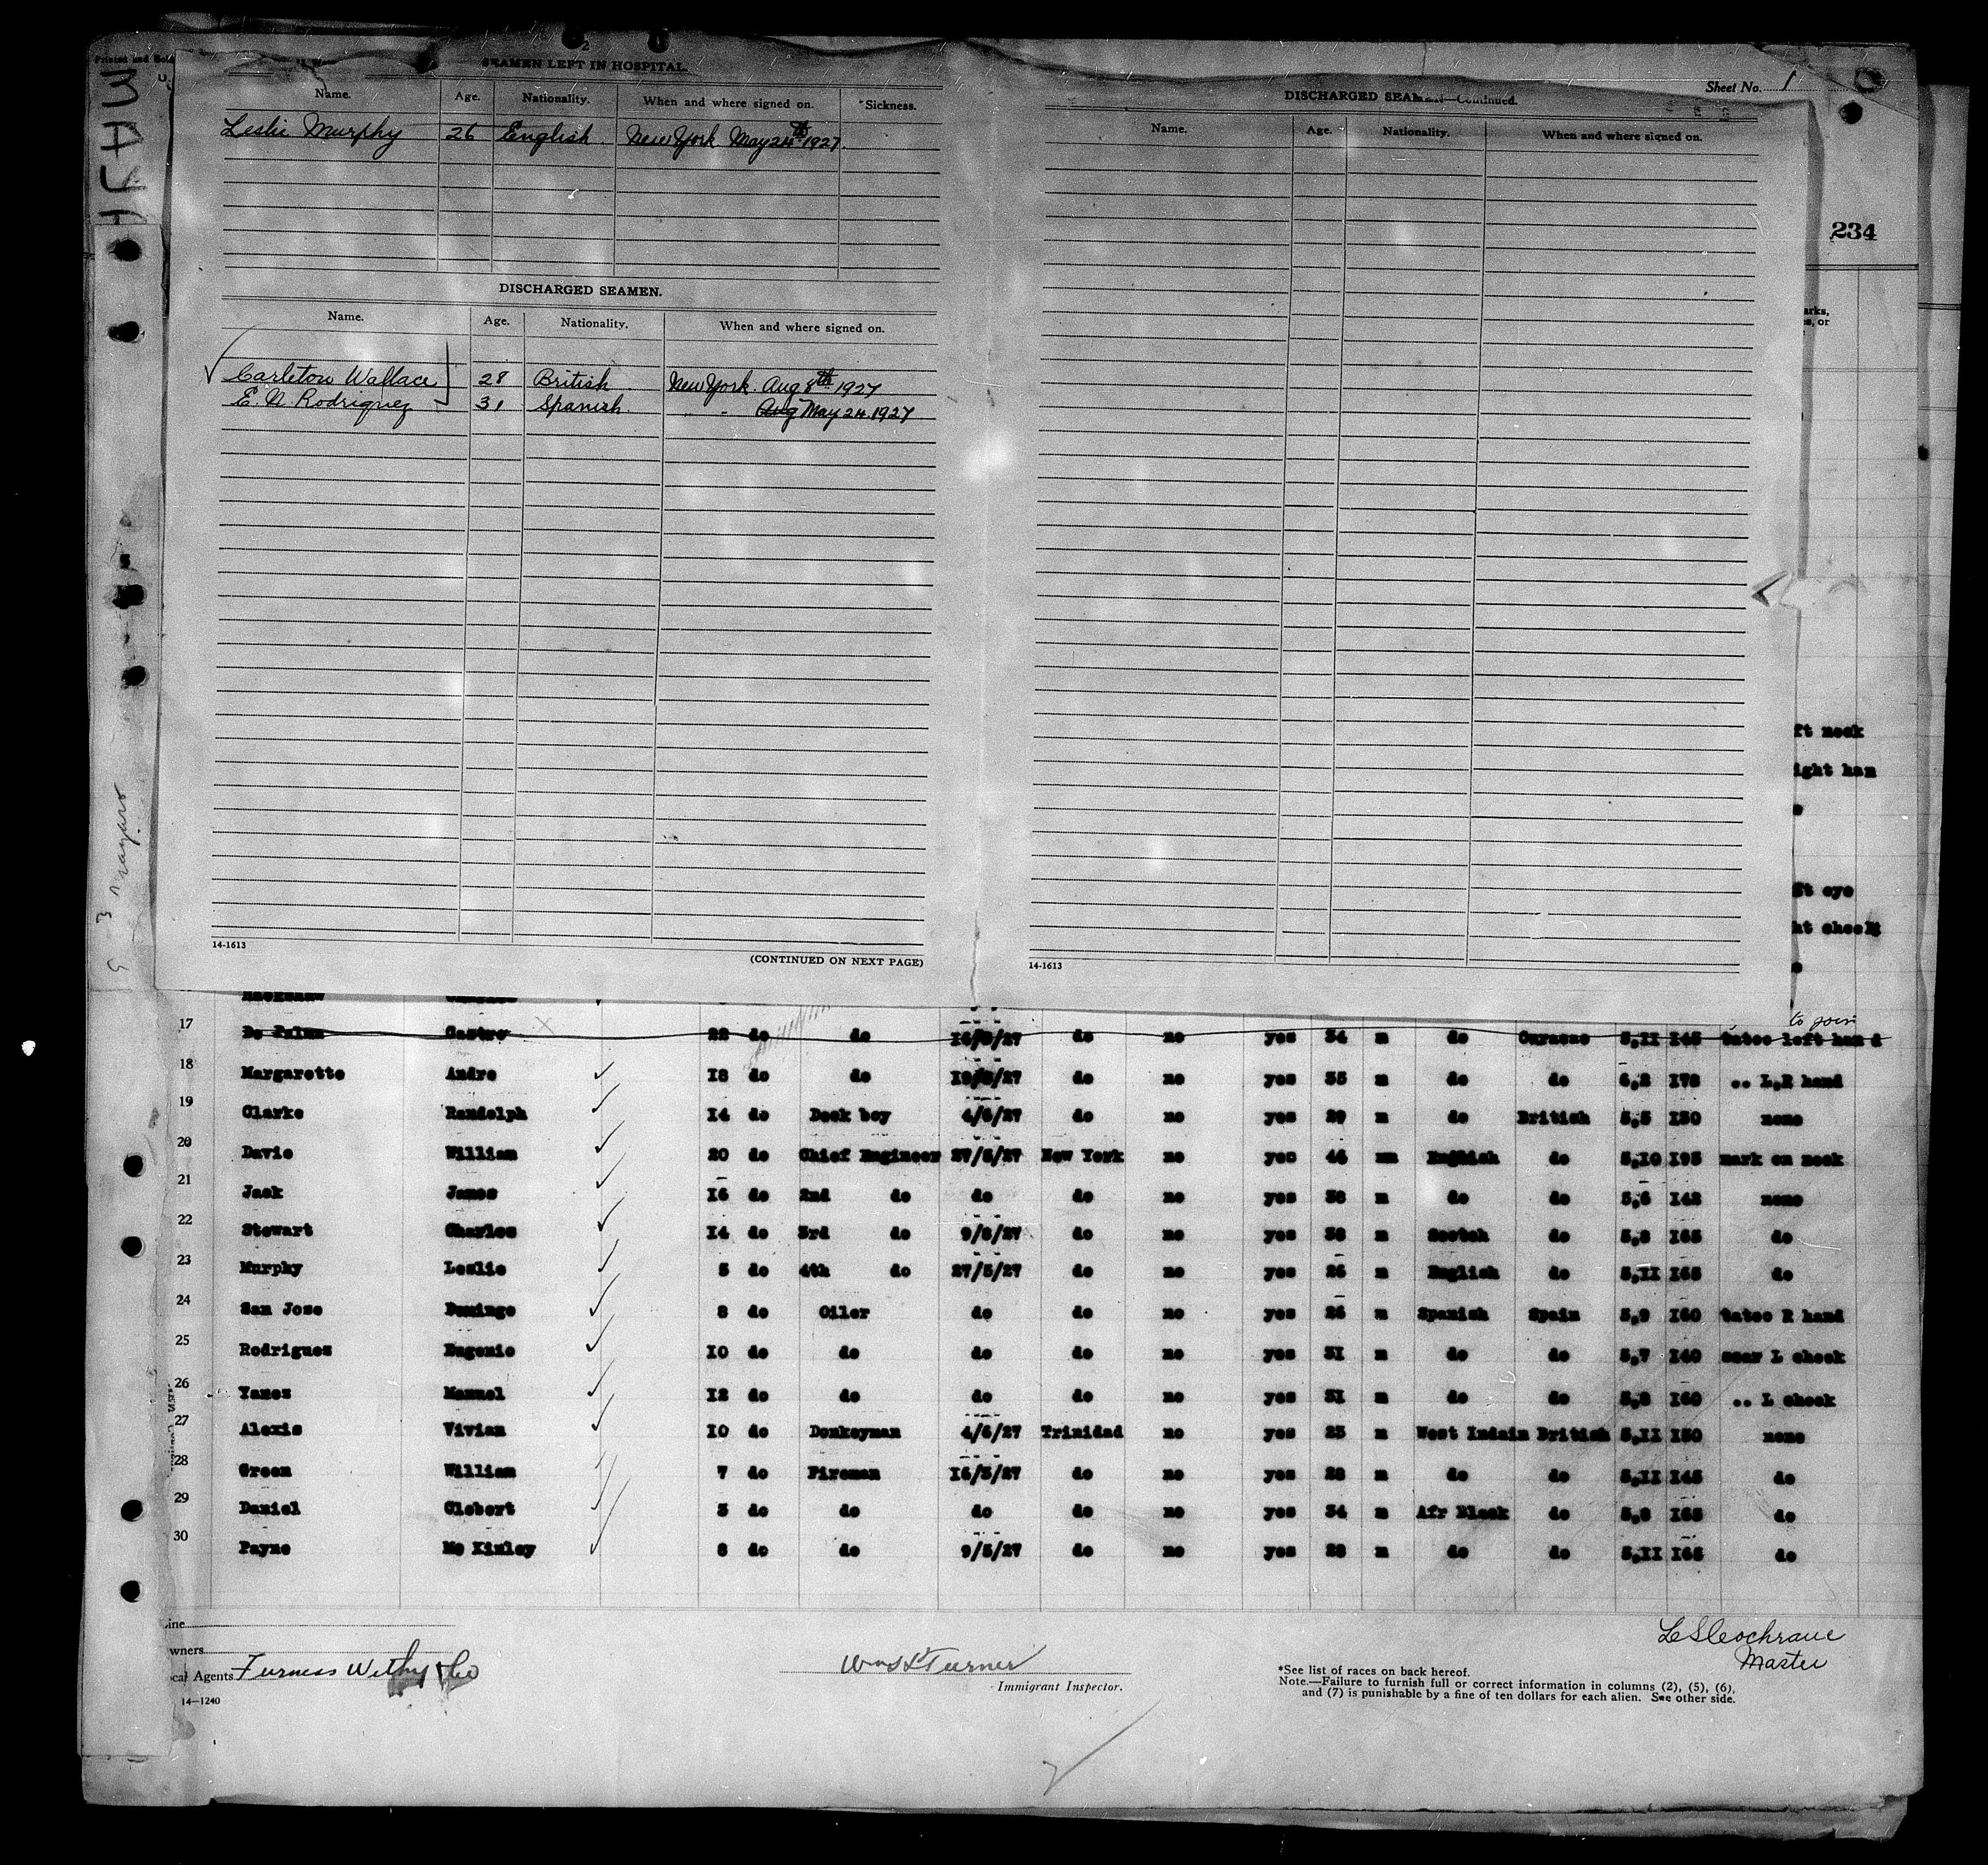 Printed and Sold
2
SEAMEN LEFT IN HOSPITAL.
Sheet No. 1
Name. Age. Nationality. When and where signed on. *Sickness.
Leslie Murphy 26 English. New York May 24th 1927.
DISCHARGED SEAMEN.
Name. Age. Nationality. When and where signed on.
Carleton Wallace 28 British. New York. Aug 8th 1927
E. N. Rodriguez 31 Spanish. " " Aug May 24. 1927
14-1613
(CONTINUED ON NEXT PAGE)
DISCHARGED SEAMEN—Continued.
Name. Age. Nationality. When and where signed on.
14-1613
234
arks,
s, or
ft neck
ight han
ft eye
ht cheek
to join
17 De Palma Castro 22 do do do no yes 34 m do Curacao 5,II I45 tatoo left hand
18 Margarette Andre I8 do do do no yes 35 m do do 6,2 I78 .. L,R hand
19 Clarke Randolph I4 do Deck boy 4/6/27 do no yes 29 m do British 5,5 I30 none
20 Davie William 20 do Chief Engineer 27/5/27 New York no yes 46 mm English do 5,IO I95 mark on neck
21 Jack James I6 do 2nd do do do no yes 38 m do do 5,6 I42 none
22 Stewart Charles I4 do 3rd do 9/8/27 do no yes 38 m Scotch do 5,8 I65 do
23 Murphy Leslie 5 do 4th do 27/5/27 do no yes 26 m English do 5,II I65 do
24 San Jose Domingo 8 do Oiler do do no yes 26 m Spanish Spain 5,9 I60 tatoo R hand
25 Rodrigues Eugenio IO do do do do no yes 3I m do do 5,7 I40 scar L cheek
26 Yanes Manuel I2 do do do do no yes 3I m do do 5,8 I60 .. L cheek
27 Alexis Vivian IO do Donkeyman 4/6/27 Trinidad no yes 25 m West Indain British 5,II I50 none
28 Green William 7 do Fireman I6/5/27 do no yes 28 m do do 5,II I45 do
29 Daniel Clebert 3 do do do do no yes 34 m Afr Black do 5,8 I65 do
30 Payne Mc Kinley 8 do do 9/5/27 do no yes 28 m do do 5,II I65 do
ine
wners
ocal Agents Furness Withy & Co
14—1240
Wm S Turner
Immigrant Inspector.
Master
*See list of races on back hereof.
Note.—Failure to furnish full or correct information in columns (2), (5), (6),
and (7) is punishable by a fine of ten dollars for each alien. See other side.